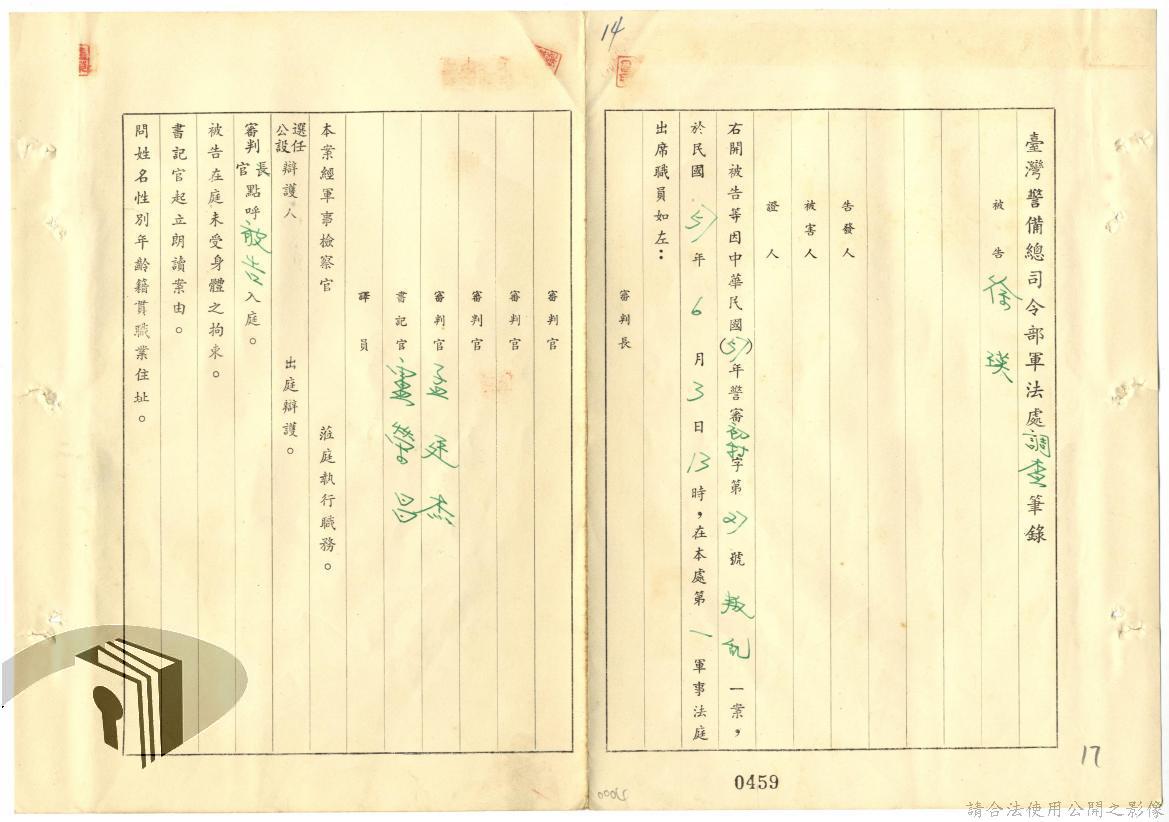 14
臺灣警備總司令部軍法處調查筆錄
被告 徐瑛
告發人
被害人
證人
右開被告等因中華民國(57)年警審初特字第27號叛乱一案，
於民國57年6月3日13時，在本處第一軍事法庭
出席職員如左：
審判長
審判官
審判官
審判官
審判官 孟廷杰
書記官 昌
譯員
本案經軍事檢察官 蒞庭執行職務。
選任公設辯護人 出庭辯護。
審判長官點呼被告入庭。
被告在庭未受身體之拘束。
書記官起立朗讀案由。
問姓名性別年齡籍貫職業住址。
17
0459
請合法使用公開之影像